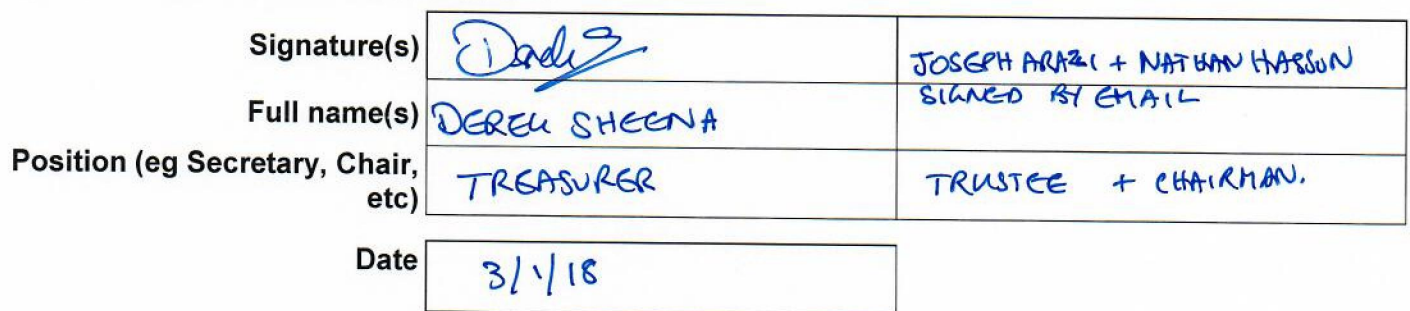 Signature(s)
JOSEPH ARAZI + NATHAN HASSON
SIGNED BY EMAIL
Full name(s) DEREK SHEENA
Position (eg Secretary, Chair,
etc) TREASURER TRUSTEE + CHAIRMAN.
Date 3/1/18